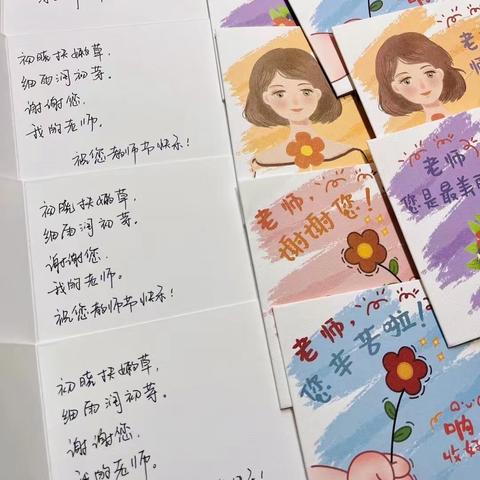 初晓扶嫩草,
细雨润初芽。
谢谢您,
我的老师。
祝您教师节快乐!
初晓扶嫩草,
细雨润初芽。
谢谢您,
我的老师。
祝您教师节快乐!
初晓扶嫩草,
细雨润初芽。
谢谢您,
我的老师。
老师,
谢谢您!
老师
您是最美
老师,
您辛苦啦!
收好